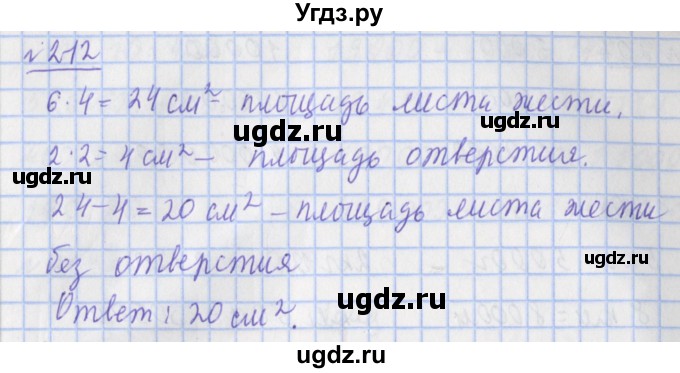 Угдз.ру
№212
6·4=24 см²- площадь листа жести.
ugdz.ru
ugdz.ru
2·2=4 см² – площадь отверстия.
ugdz.ru
ugdz.ru
24-4=20 см² – площадь листа жести
ugdz.ru
без отверстия
ugdz.ru
ugdz.ru
Ответ: 20 см².
ugdz.ru
ugdz.ru